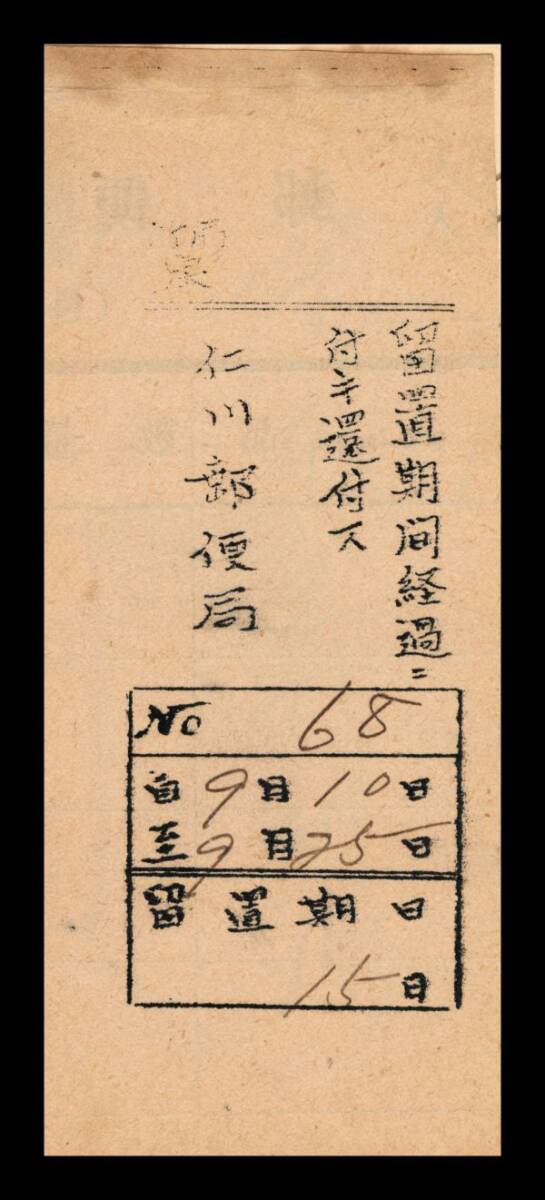 留置期間経過ニ
付キ還付ス
仁川郵便局
No 68
自 9月 10日
至 9月 25日
留置期日
15日